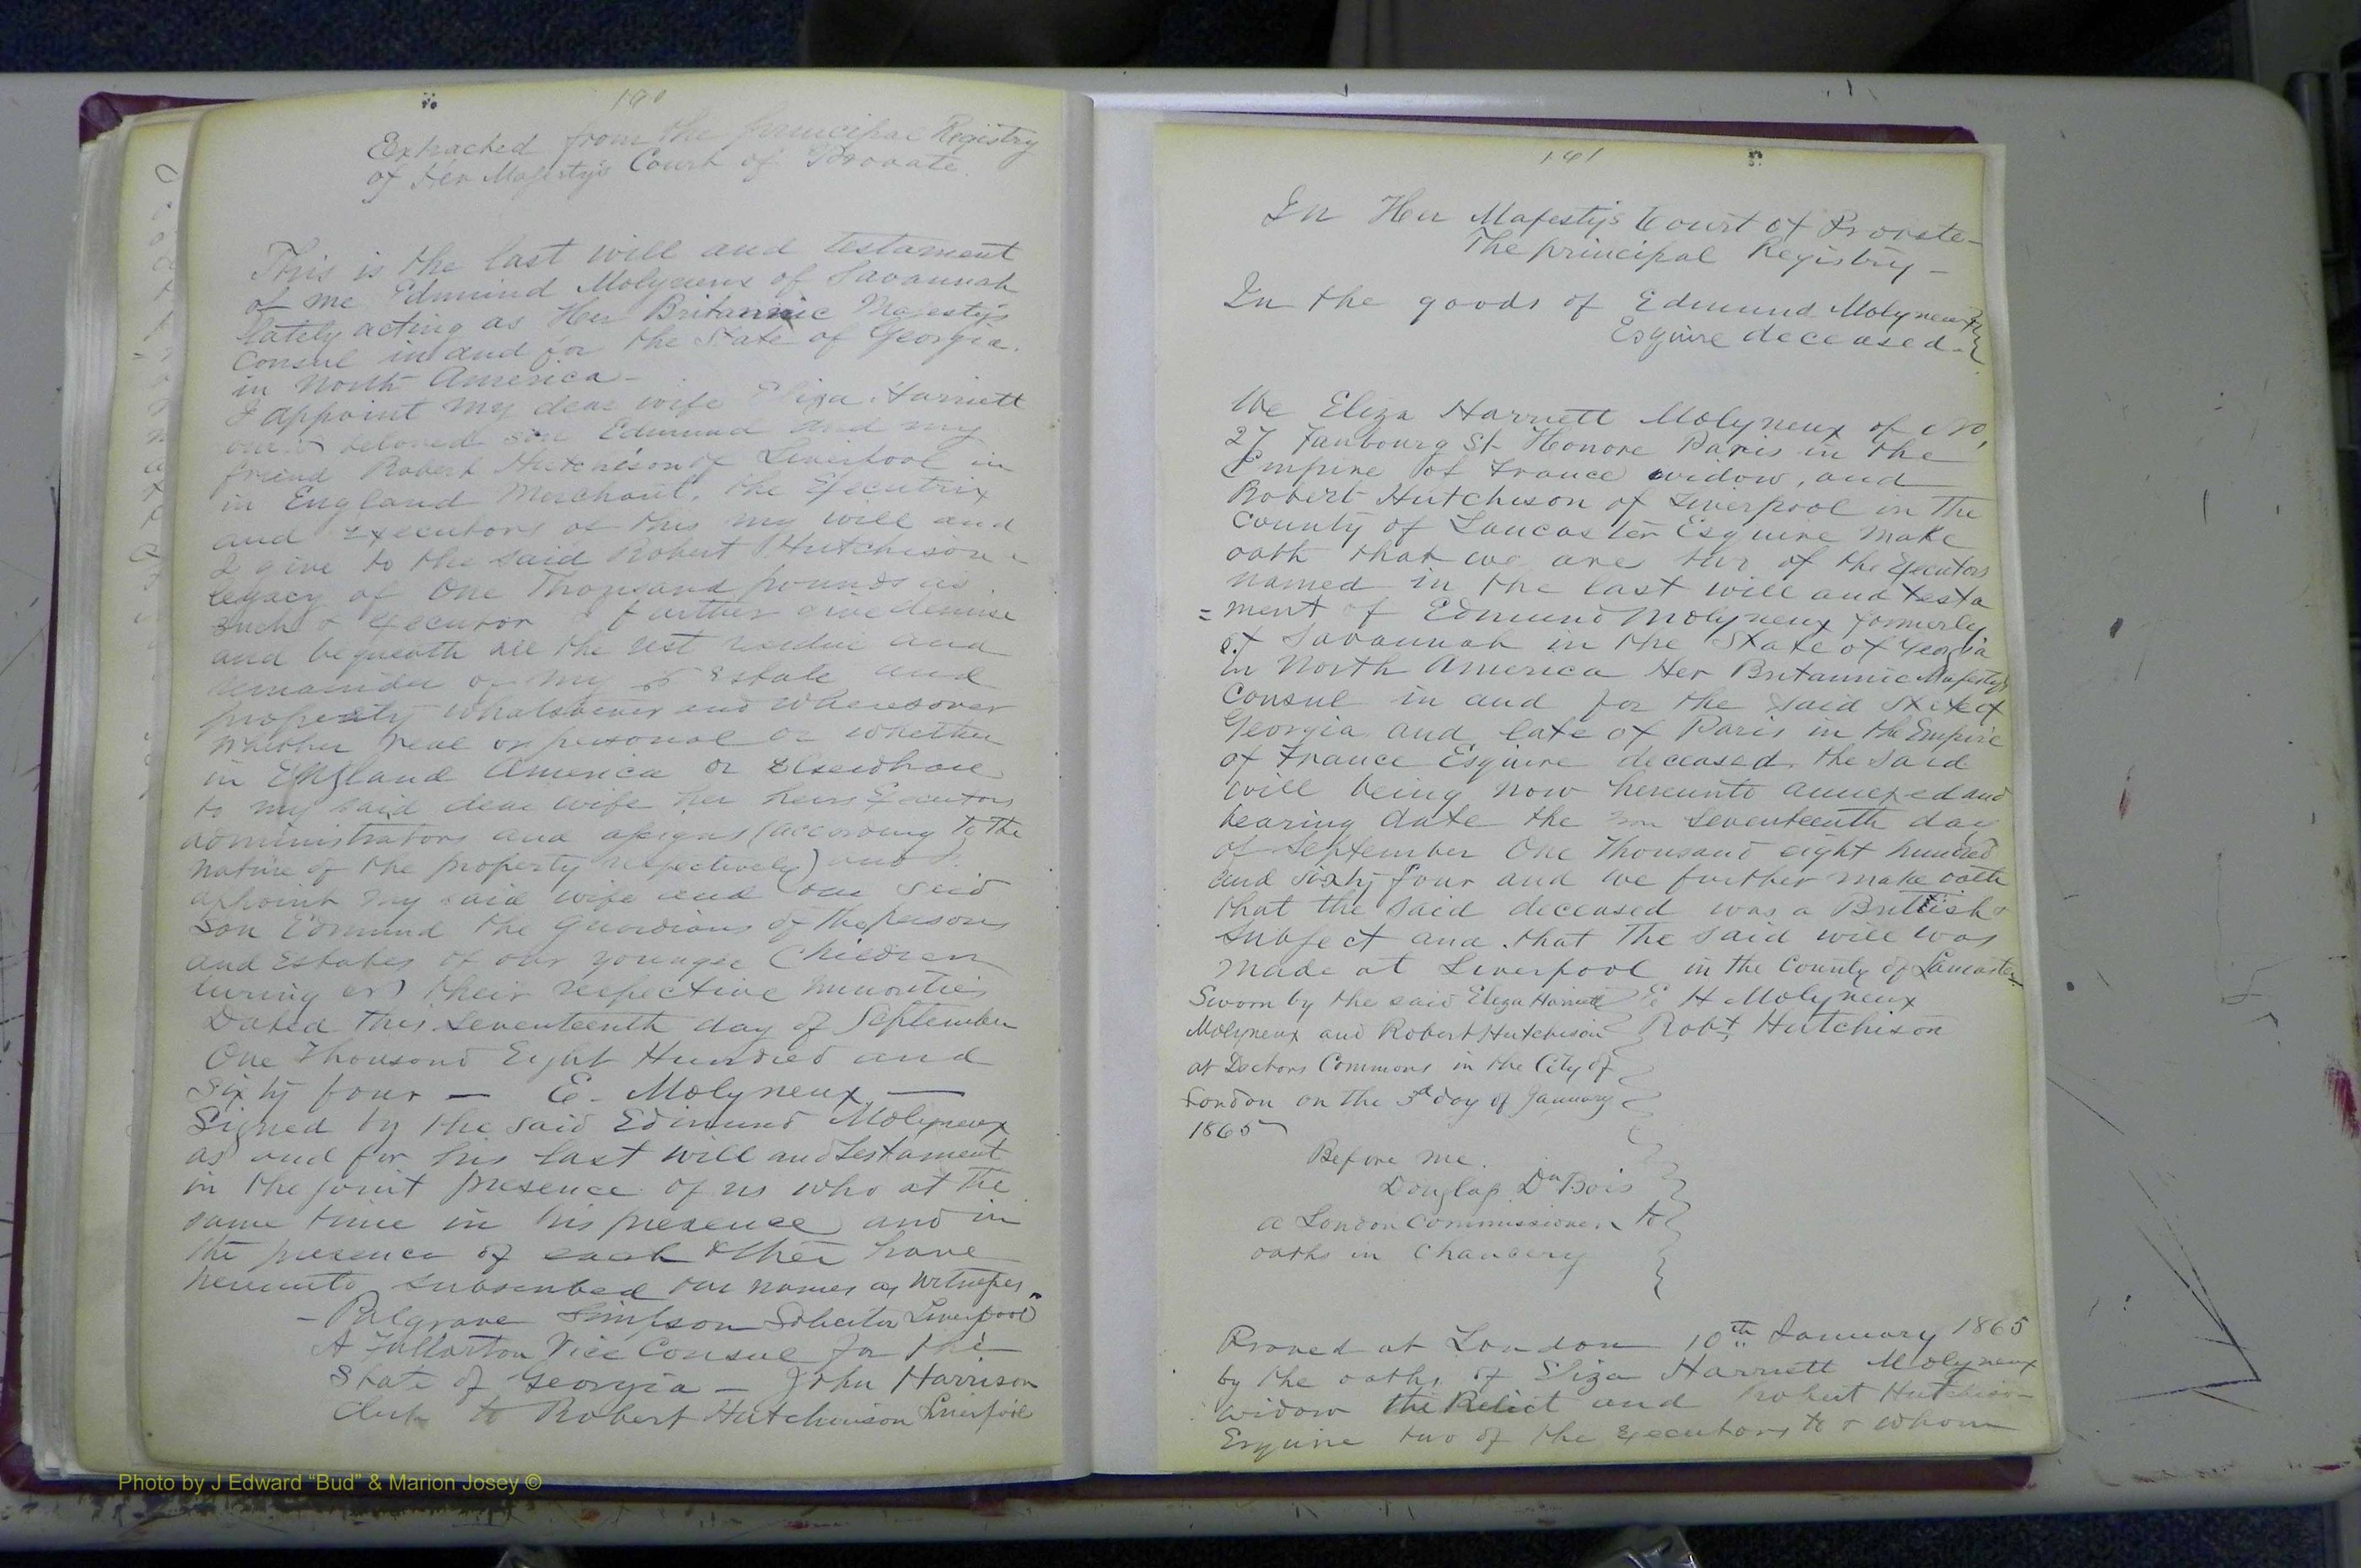 190
Extracted from the principal Registry
of Her Majesty's Court of Probate.
This is the last will and testament
of me Edmund Molyneux of Savannah
lately acting as Her Britannic Majesty's
Consul in and for the State of Georgia.
in North America -
I appoint my dear wife Eliza Harriett
our beloved son Edmund and my
friend Robert Hutchison of Liverpool in
in England Merchant. the Executrix
and Executors of this my will and
I give to the said Robert Hutchison a
legacy of One Thousand pounds as
such Executor I further give demise
and bequeath all the rest residue and
remainder of my Estate and
property whatsoever and wheresoever
whether real or personal or whether
in England America or Elsewhere
to my said dear wife her heirs Executors
administrators and assigns (according to the
nature of the property respectively) and I
appoint my said wife and our said
Son Edmund the Guardians of the persons
and Estates of our younger Children
during their respective minorities
Dated this Seventeenth day of September
One Thousand Eight Hundred and
Sixty four — E. Molyneux —
Signed by the said Edmund Molyneux
as and for his last will and Testament
in the joint presence of us who at the
same time in his presence and in
the presence of each other have
hereunto subscribed our names as witnesses
- Palgrave Simpson Solicitor Liverpool
A Fullarton Vice Consul for the
State of Georgia — John Harrison
Clerk to Robert Hutchinson Liverpool
191
In Her Majesty's Court of Probate-
The principal Registry -
In the goods of Edmund Molyneux
Esquire deceased.
We Eliza Harriett Molyneux of No,
27 Faubourg St Honore Paris in the
Empire of France widow, and
Robert Hutchison of Liverpool in the
County of Lancaster Esquire make
oath that we are two of the Executors
named in the last will and testa
= ment of Edmund Molyneux formerly
of Savannah in the State of Georgia
in North America Her Britannic Majesty's
Consul in and for the said State of
Georgia and late of Paris in the Empire
of France Esquire deceased, the said
will being now hereunto annexed and
bearing date the seventeenth day
of September One Thousand eight hundred
and sixty four and we further make oath
that the said deceased was a British
subject and that The said will was
made at Liverpool in the County of Lancaster
Sworn by the said Eliza Harriett E H Molyneux
Molyneux and Robert Hutchison Robt Hutchison
at Doctors Commons in the City of
London on the 3rd day of January
1865
Before me.
Douglas DuBois
a London Commissioner to
oaths in Chancery
Proved at London 10th January 1865
by the oaths of Eliza Harriett Molyneux
widow the Relict and Robert Hutchison
Esquire two of the Executors to whom
Photo by J Edward “Bud” & Marion Josey ©